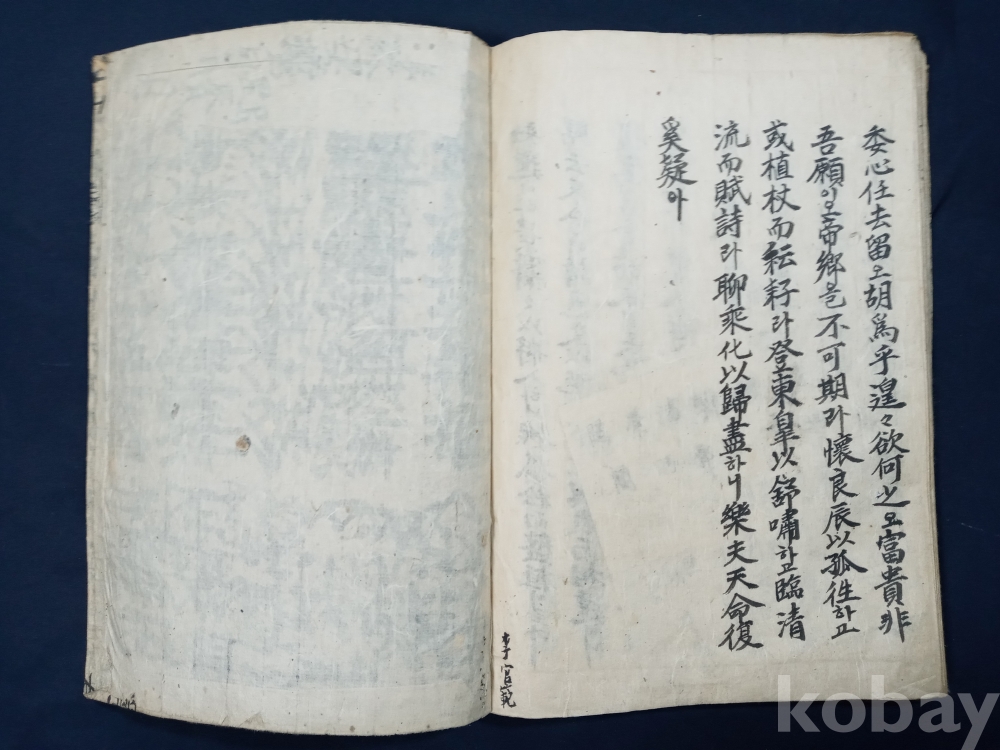 委心任去留오胡爲乎遑々欲何之오富貴非
吾願이오帝鄕은不可期라懷良辰以孤徃하고
或植杖而耘耔라登東皐以舒嘯하고臨清
流而賦詩라聊乘化以歸盡하니樂夫天命復
奚疑아
李官範
kobay